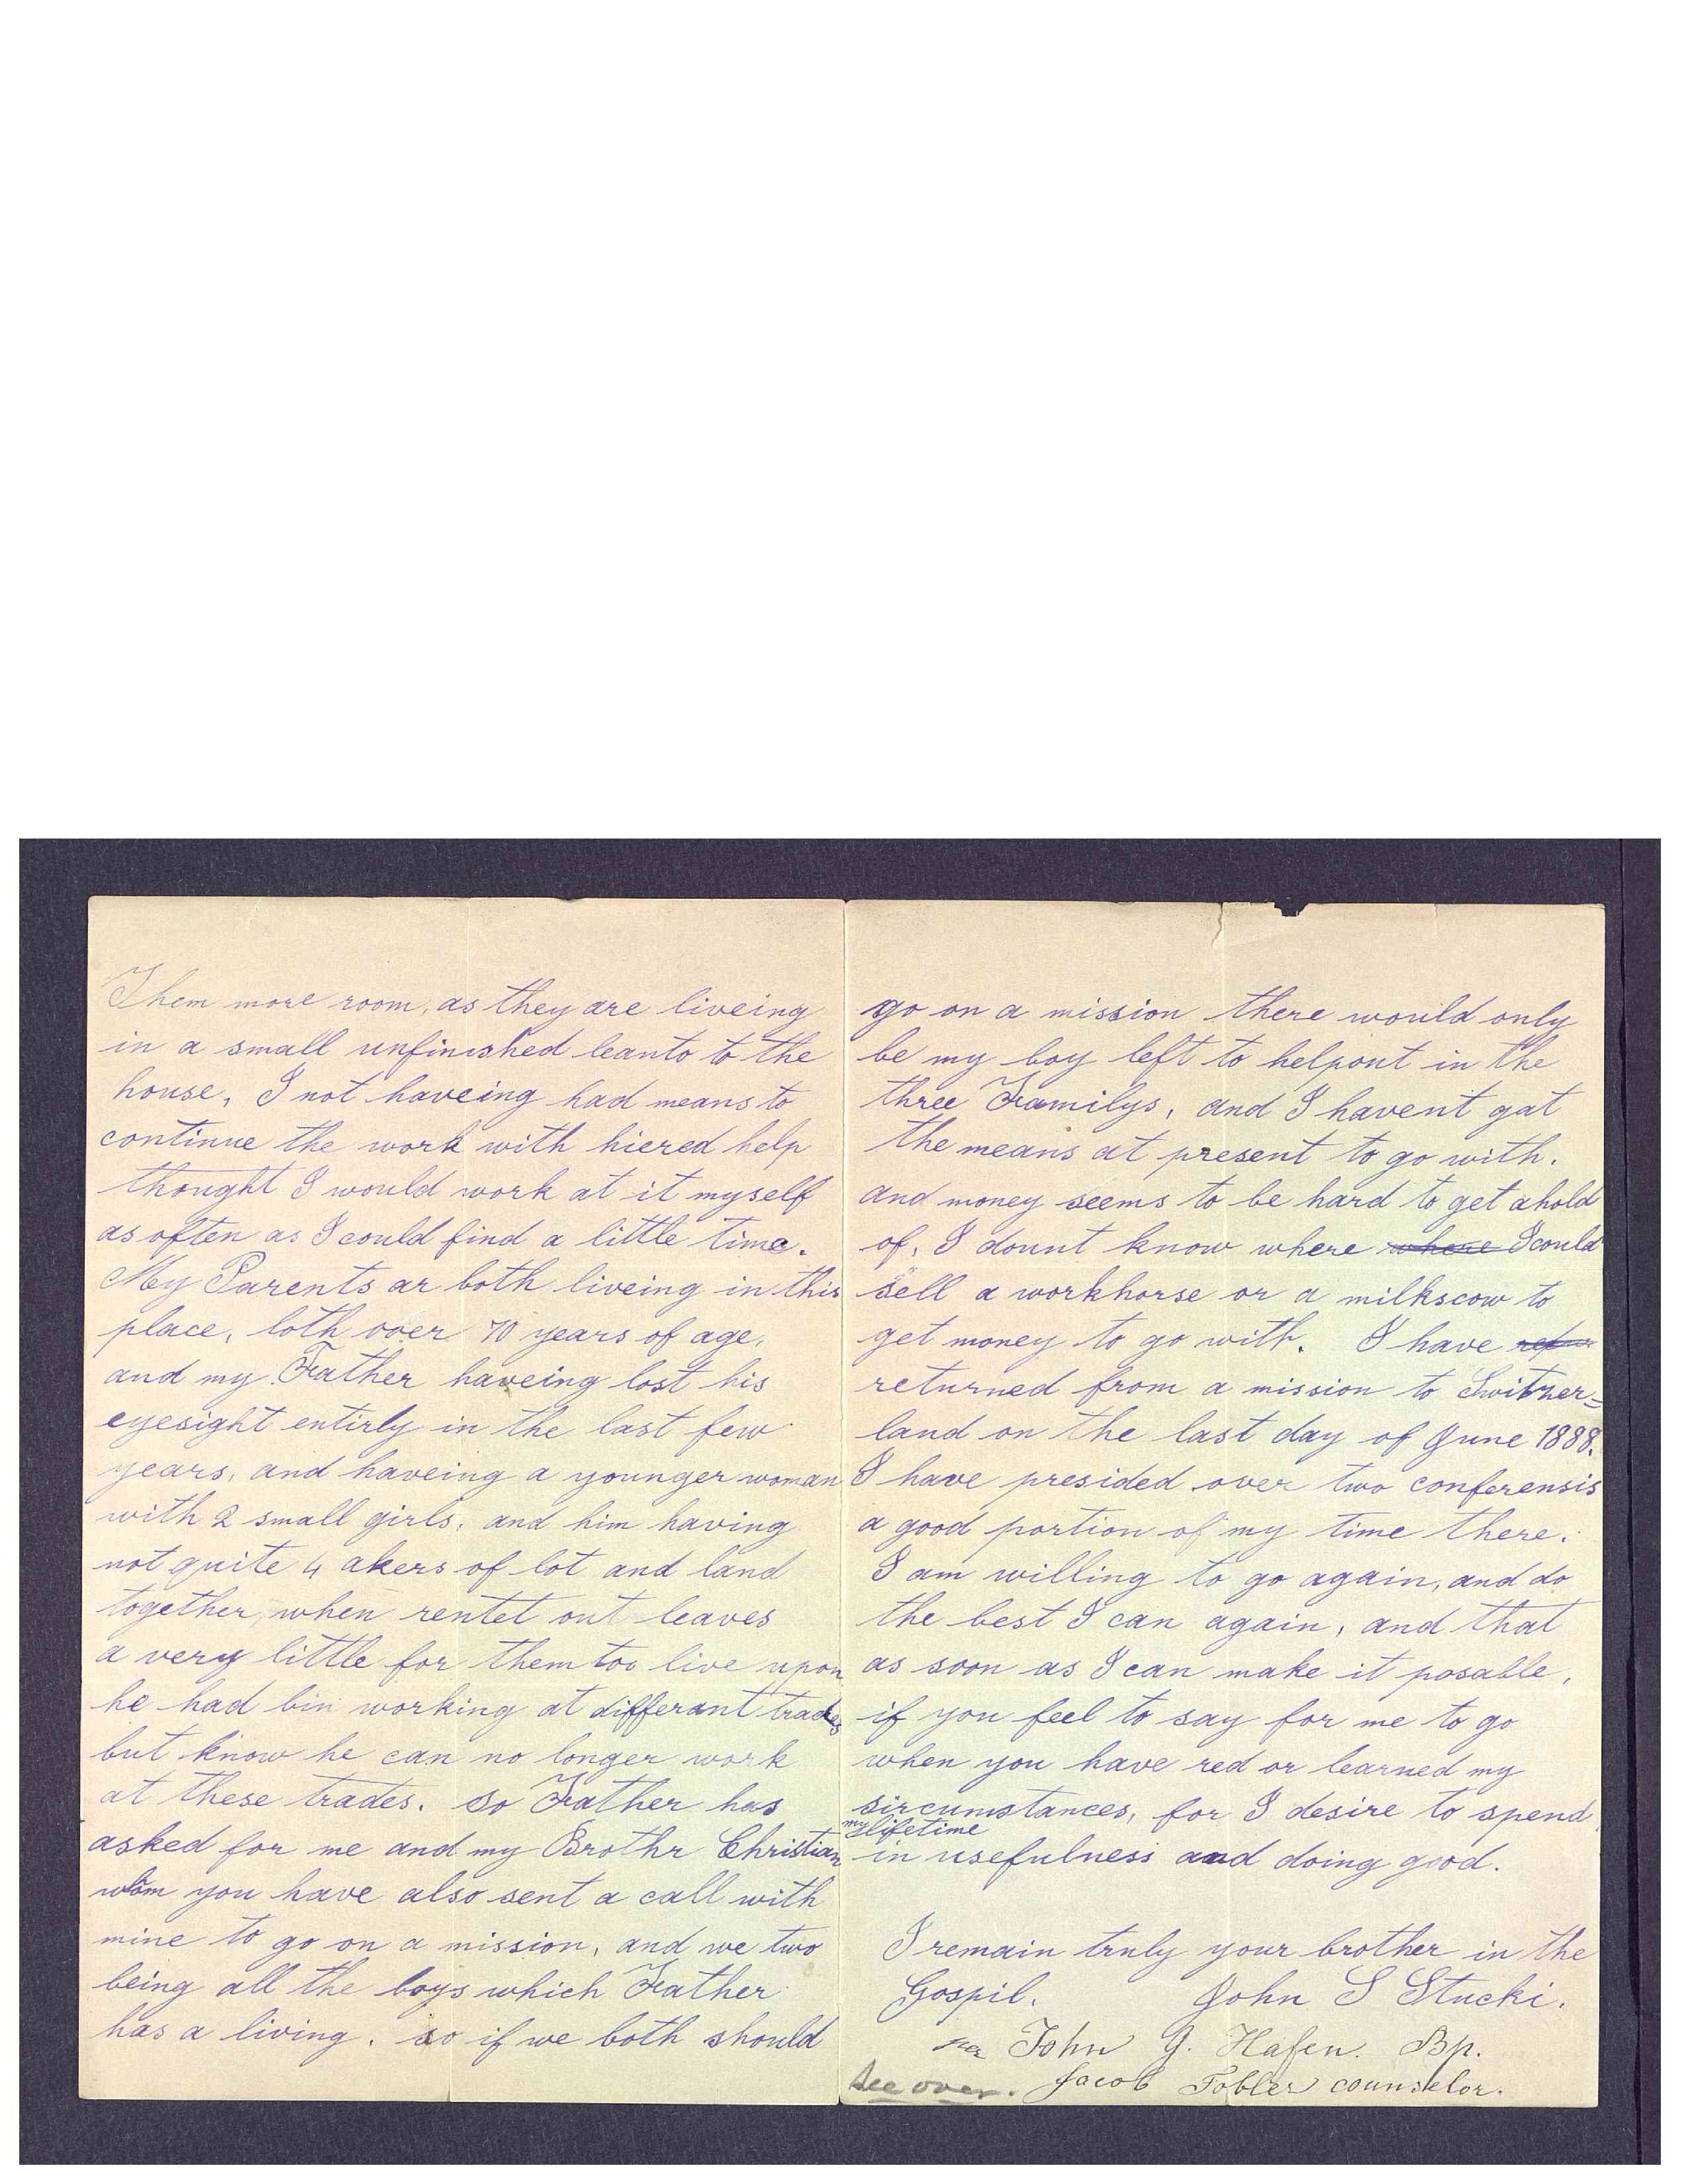 Them more room, as they are liveing
in a small unfinished leanto to the
house, I not haveing had means to
continue the work with hiered help
thought I would work at it myself
as often as I could find a little time.
My Parents ar both liveing in this
place, both over 70 years of age,
and my Father haveing lost his
eyesight entirly in the last few
years, and haveing a younger woman
with 2 small girls, and him having
not quite 4 akers of lot and land
together, when rentet out leaves
a very little for them too live upon
he had bin working at differant trades
but know he can no longer work
at these trades. so Father has
asked for me and my Brothr Christian
whom you have also sent a call with
mine to go on a mission, and we two
being all the boys which Father
has a living. so if we both should
go on a mission there would only
be my boy left to helpout in the
three Familys, and I havent gat
the means at present to go with.
and money seems to be hard to get ahold
of, I dount know where where I could
sell a workhorse or a milkscow to
get money to go with. I have
returned from a mission to Switzer=
land on the last day of June 1888.
I have presided over two conferensis
a good portion of my time there.
I am willing to go again, and do
the best I can again, and that
as soon as I can make it posable,
if you feel to say for me to go
when you have red or learned my
sircumstances, for I desire to spend
my lifetime
in usefulness and doing good.
I remain truly your brother in the
Gospil. John S Stucki.
John G. Hafen. Bp.
See over. Jacob Tobler counselor.